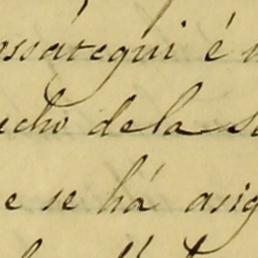 ossátegui é
echo dela
e se há asig